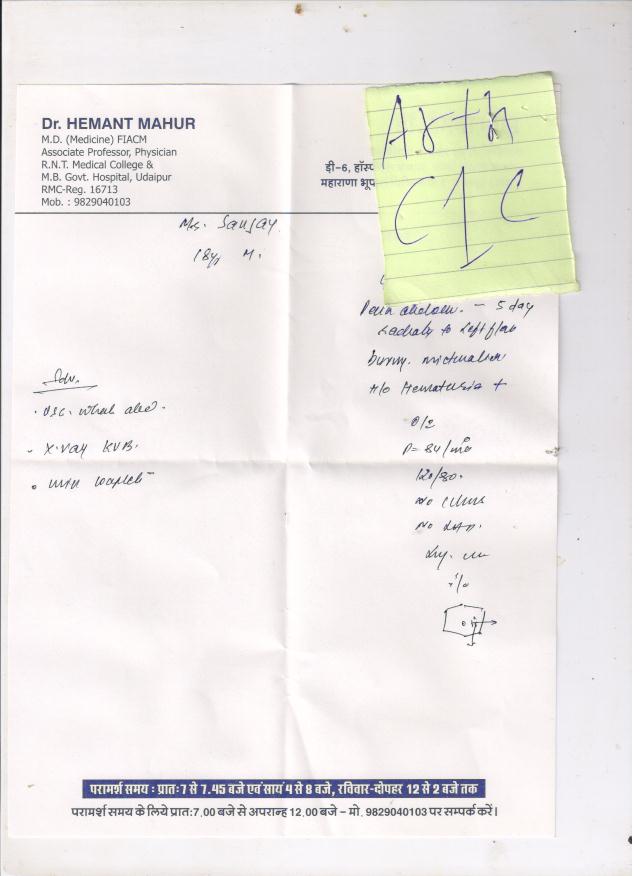 Dr. HEMANT MAHUR
M.D. (Medicine) FIACM
Associate Professor, Physician
R.N.T. Medical College &
M.B. Govt. Hospital, Udaipur
RMC-Reg. 16713
Mob. : 9829040103
डी-6, हॉस्प
महाराणा भूप
Arth
C1C
Sanjay
18y M.
Pain abdomen. - 5 day
to left
Burning micturation
H/O Hematuria +
Adv.
O/E
P= 84/min
120/80
No
No
. USG. whole abd.
- X-ray KUB.
. Urin complet
परामर्श समय : प्रातः 7 से 7.45 बजे एवं सायं 4 से 8 बजे, रविवार-दोपहर 12 से 2 बजे तक
परामर्श समय के लिये प्रातः 7.00 बजे से अपरान्ह 12.00 बजे – मो. 9829040103 पर सम्पर्क करें।